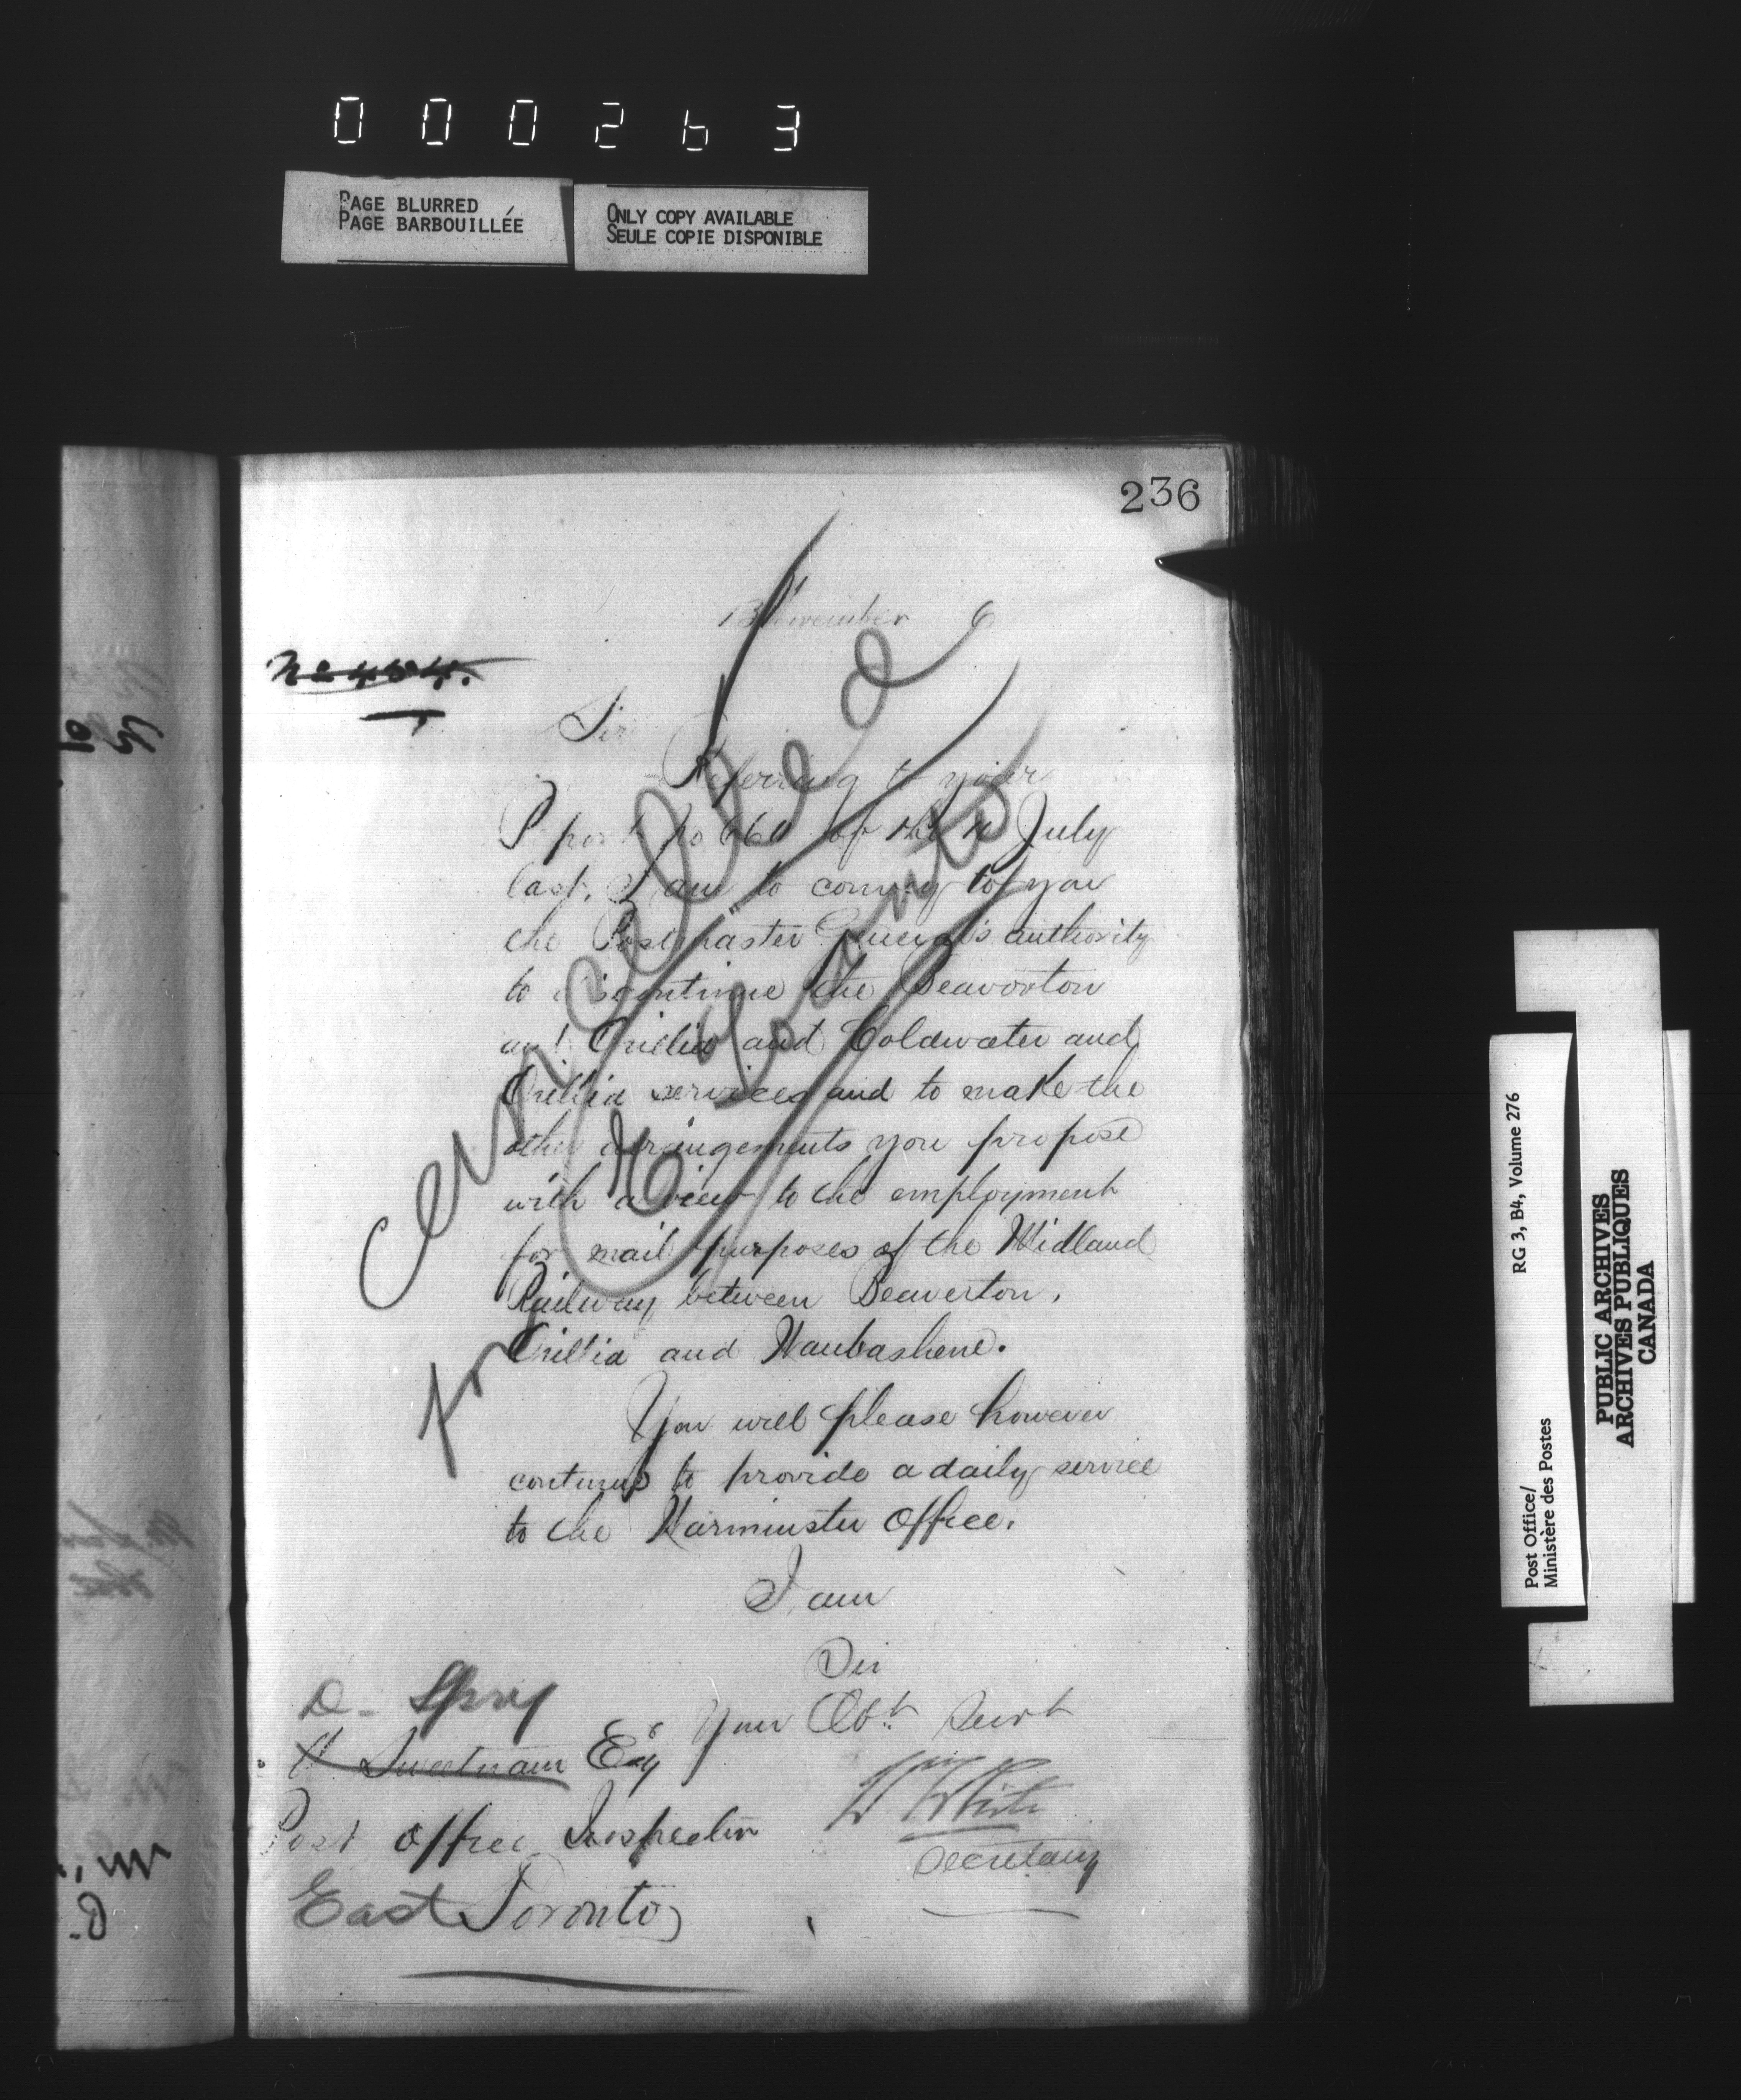 000263
PAGE BLURRED
PAGE BARBOUILLÉE
ONLY COPY AVAILABLE
SEULE COPIE DISPONIBLE
236
13 November 6
No 484.
Sir
Referring to your
Report No 660 of the July
last, I am to convey to you
the Postmaster General's authority
to discontinue the Beaverton
and Orillia and Coldwater and
Orillia services and to make the
other arrangements you propose
with a view to the employment
for mail purposes of the Midland
Railway between Beaverton,
Orillia and Waubashene.
You will please however
continue to provide a daily service
to the Warminster Office.
I am
Sir
Your Obt. Servt
Wm White
Secretary
D. Spry
Sweetnam Esq
Post Office Inspector
East Toronto
Cancelled
Post Office/
Ministère des Postes
RG 3, B4, Volume 276
PUBLIC ARCHIVES
ARCHIVES PUBLIQUES
CANADA